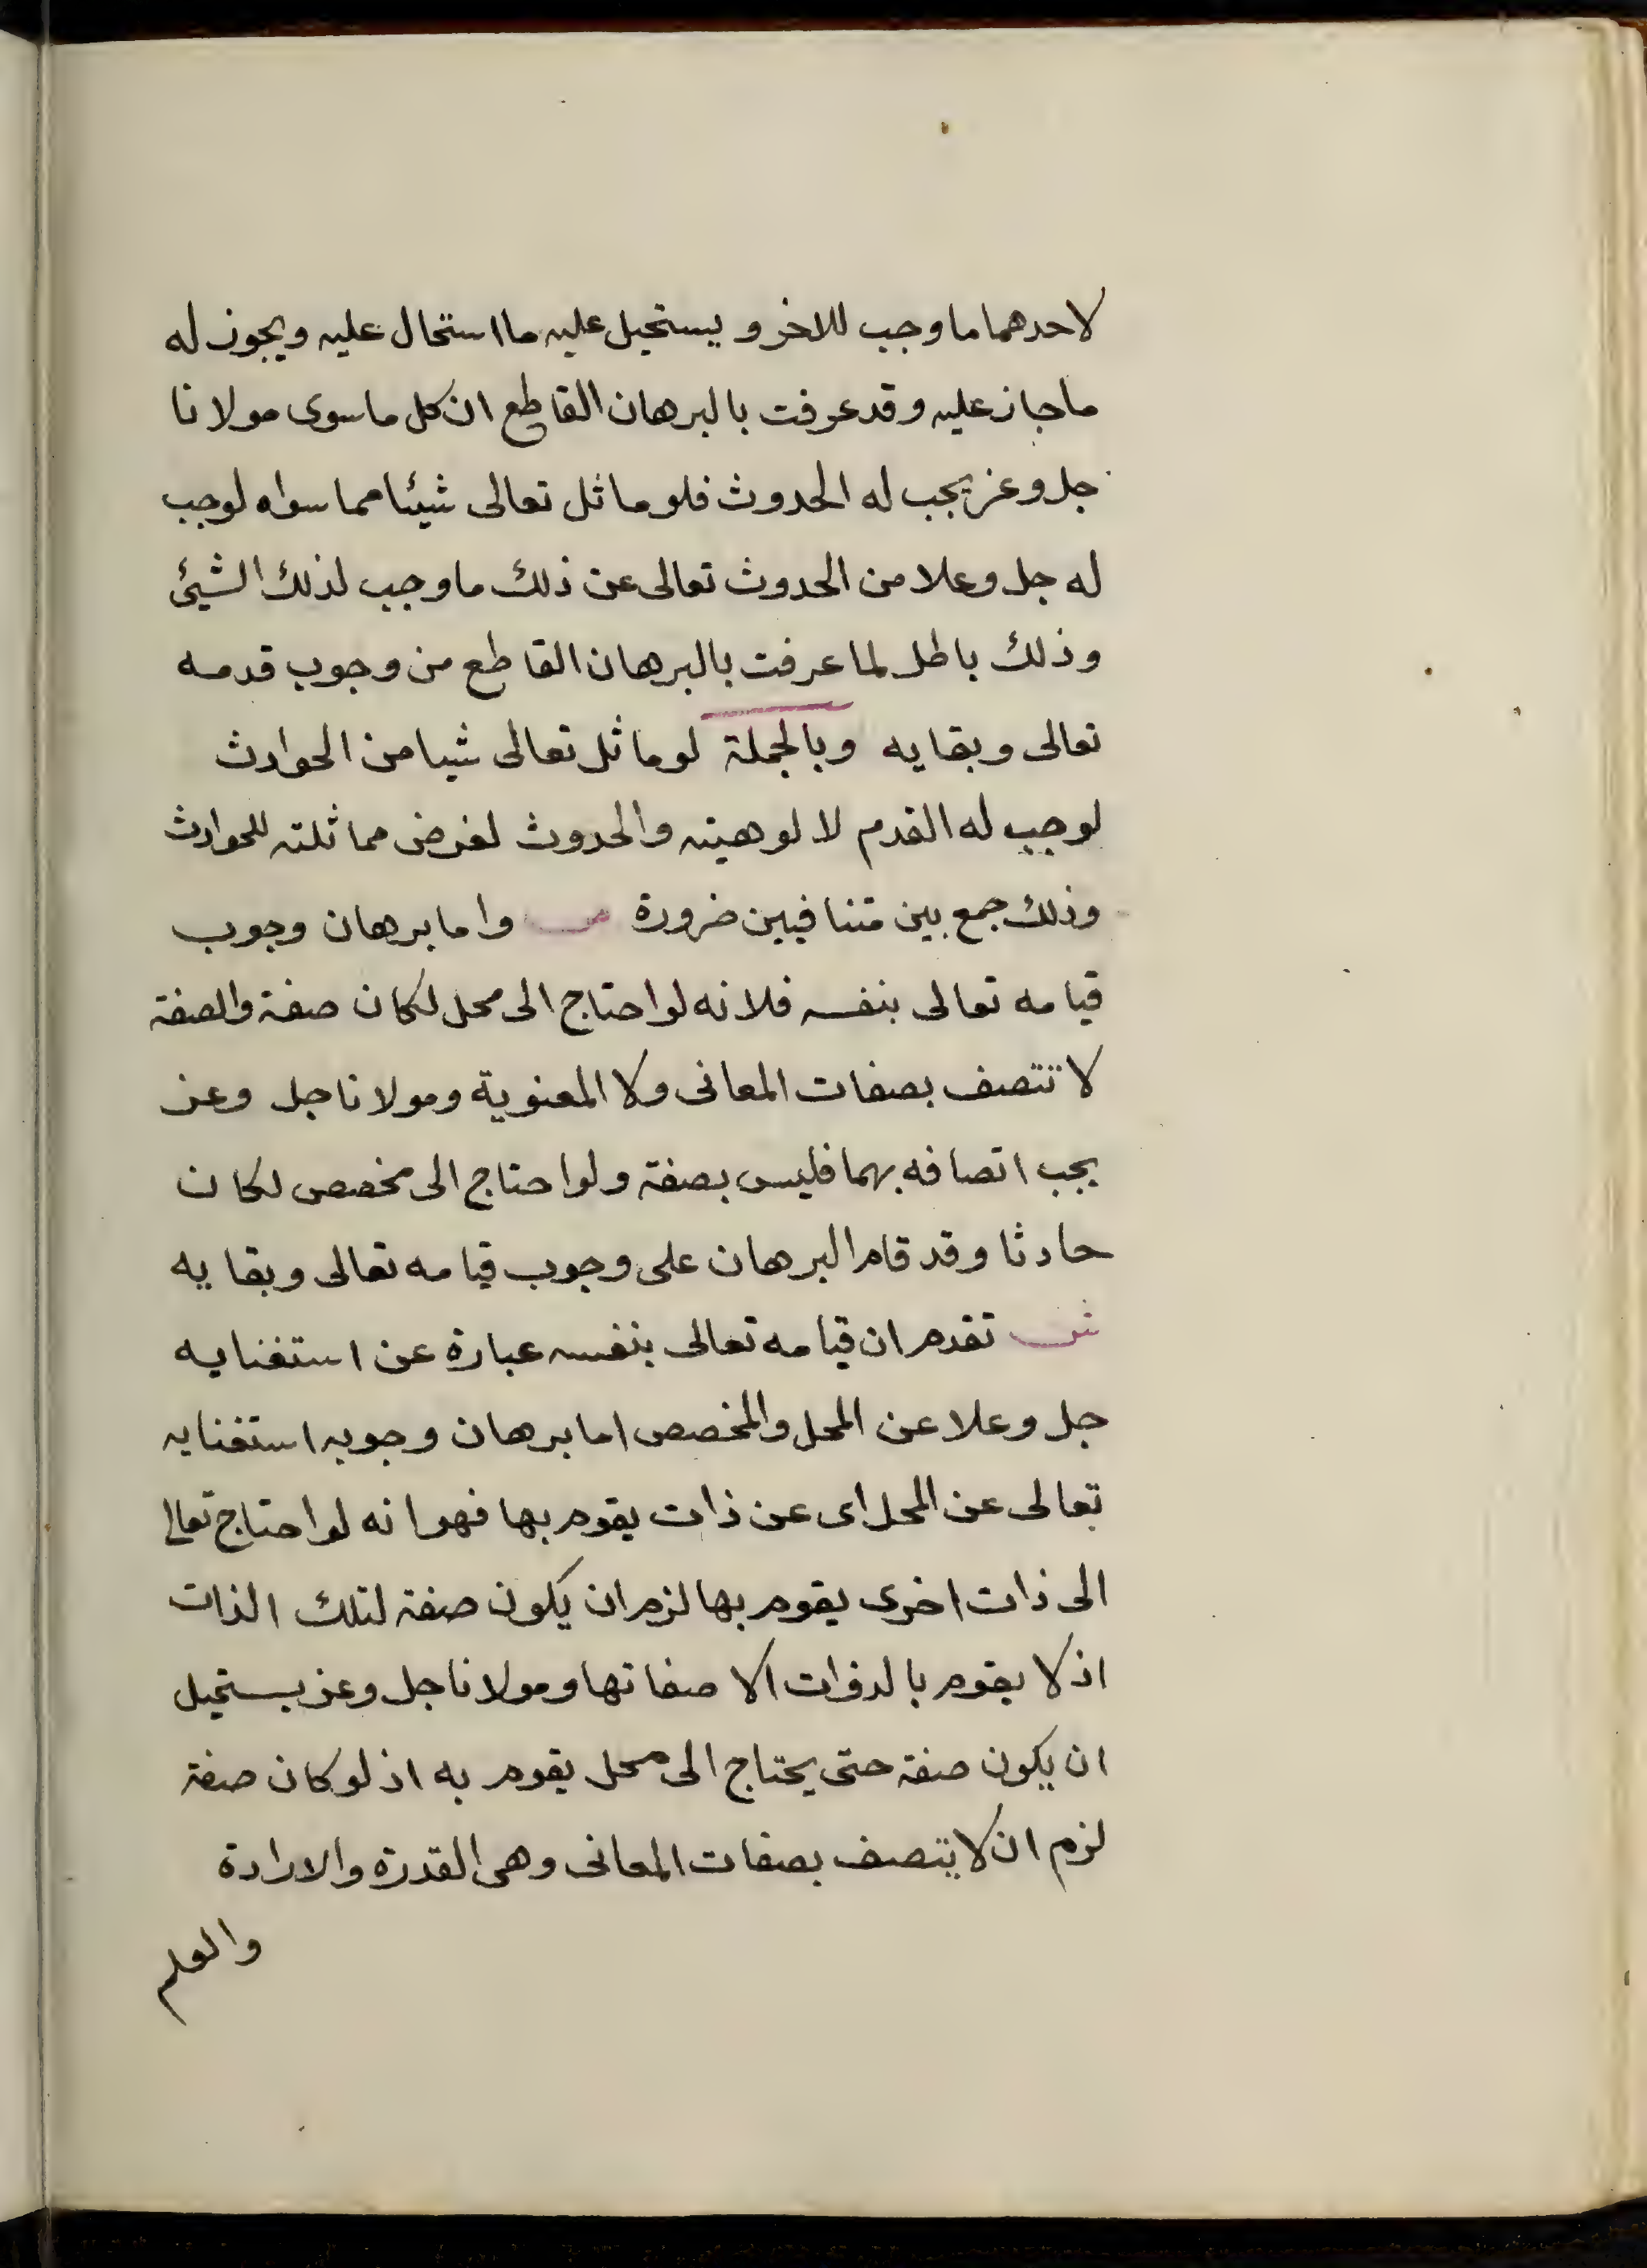 لاحدهما ما وجب للاخر و يستحيل عليه ما استحال عليه ويجوز له
ما جاز عليه وقد عرفت بالبرهان القاطع ان كل ما سوى مولانا
جل وعز يجب له الحدوث فلو ماثل تعالى شيئا مما سواه لوجب
له جل وعلا من الحدوث تعالى عن ذلك ما وجب لذلك الشيئ
وذلك باطل لما عرفت بالبرهان القاطع من وجوب قدمه
تعالى وبقايه وبالجملة لو ماثل تعالى شيا من الحوادث
لوجب له القدم لالوهيته والحدوث لفرض مماثلته للحوادث
وذلك جمع بين متنافيين ضرورة ص واما برهان وجوب
قيامه تعالى بنفسه فلانه لو احتاج الى محل لكان صفة والصفة
لا تتصف بصفات المعانى ولا المعنوية ومولانا جل وعز
يجب اتصافه بهما فليس بصفة ولو احتاج الى مخصص لكان
حادثا وقد قام البرهان على وجوب قيامه تعالى وبقايه
ش تقدم ان قيامه تعالى بنفسه عبارة عن استغنايه
جل وعلا عن المحل والمخصص اما برهان وجوبه استغنايه
تعالى عن المحل اى عن ذات يقوم بها فهو انه لو احتاج تعالى
الى ذات اخرى يقوم بها لزم ان يكون صفة لتلك الذات
اذ لا يقوم بالذوات الا صفاتها ومولانا جل وعز يستحيل
ان يكون صفة حتى يحتاج الى محل يقوم به اذ لو كان صفة
لزم ان لا يتصف بصفات المعانى وهى القدرة والارادة
والعلم